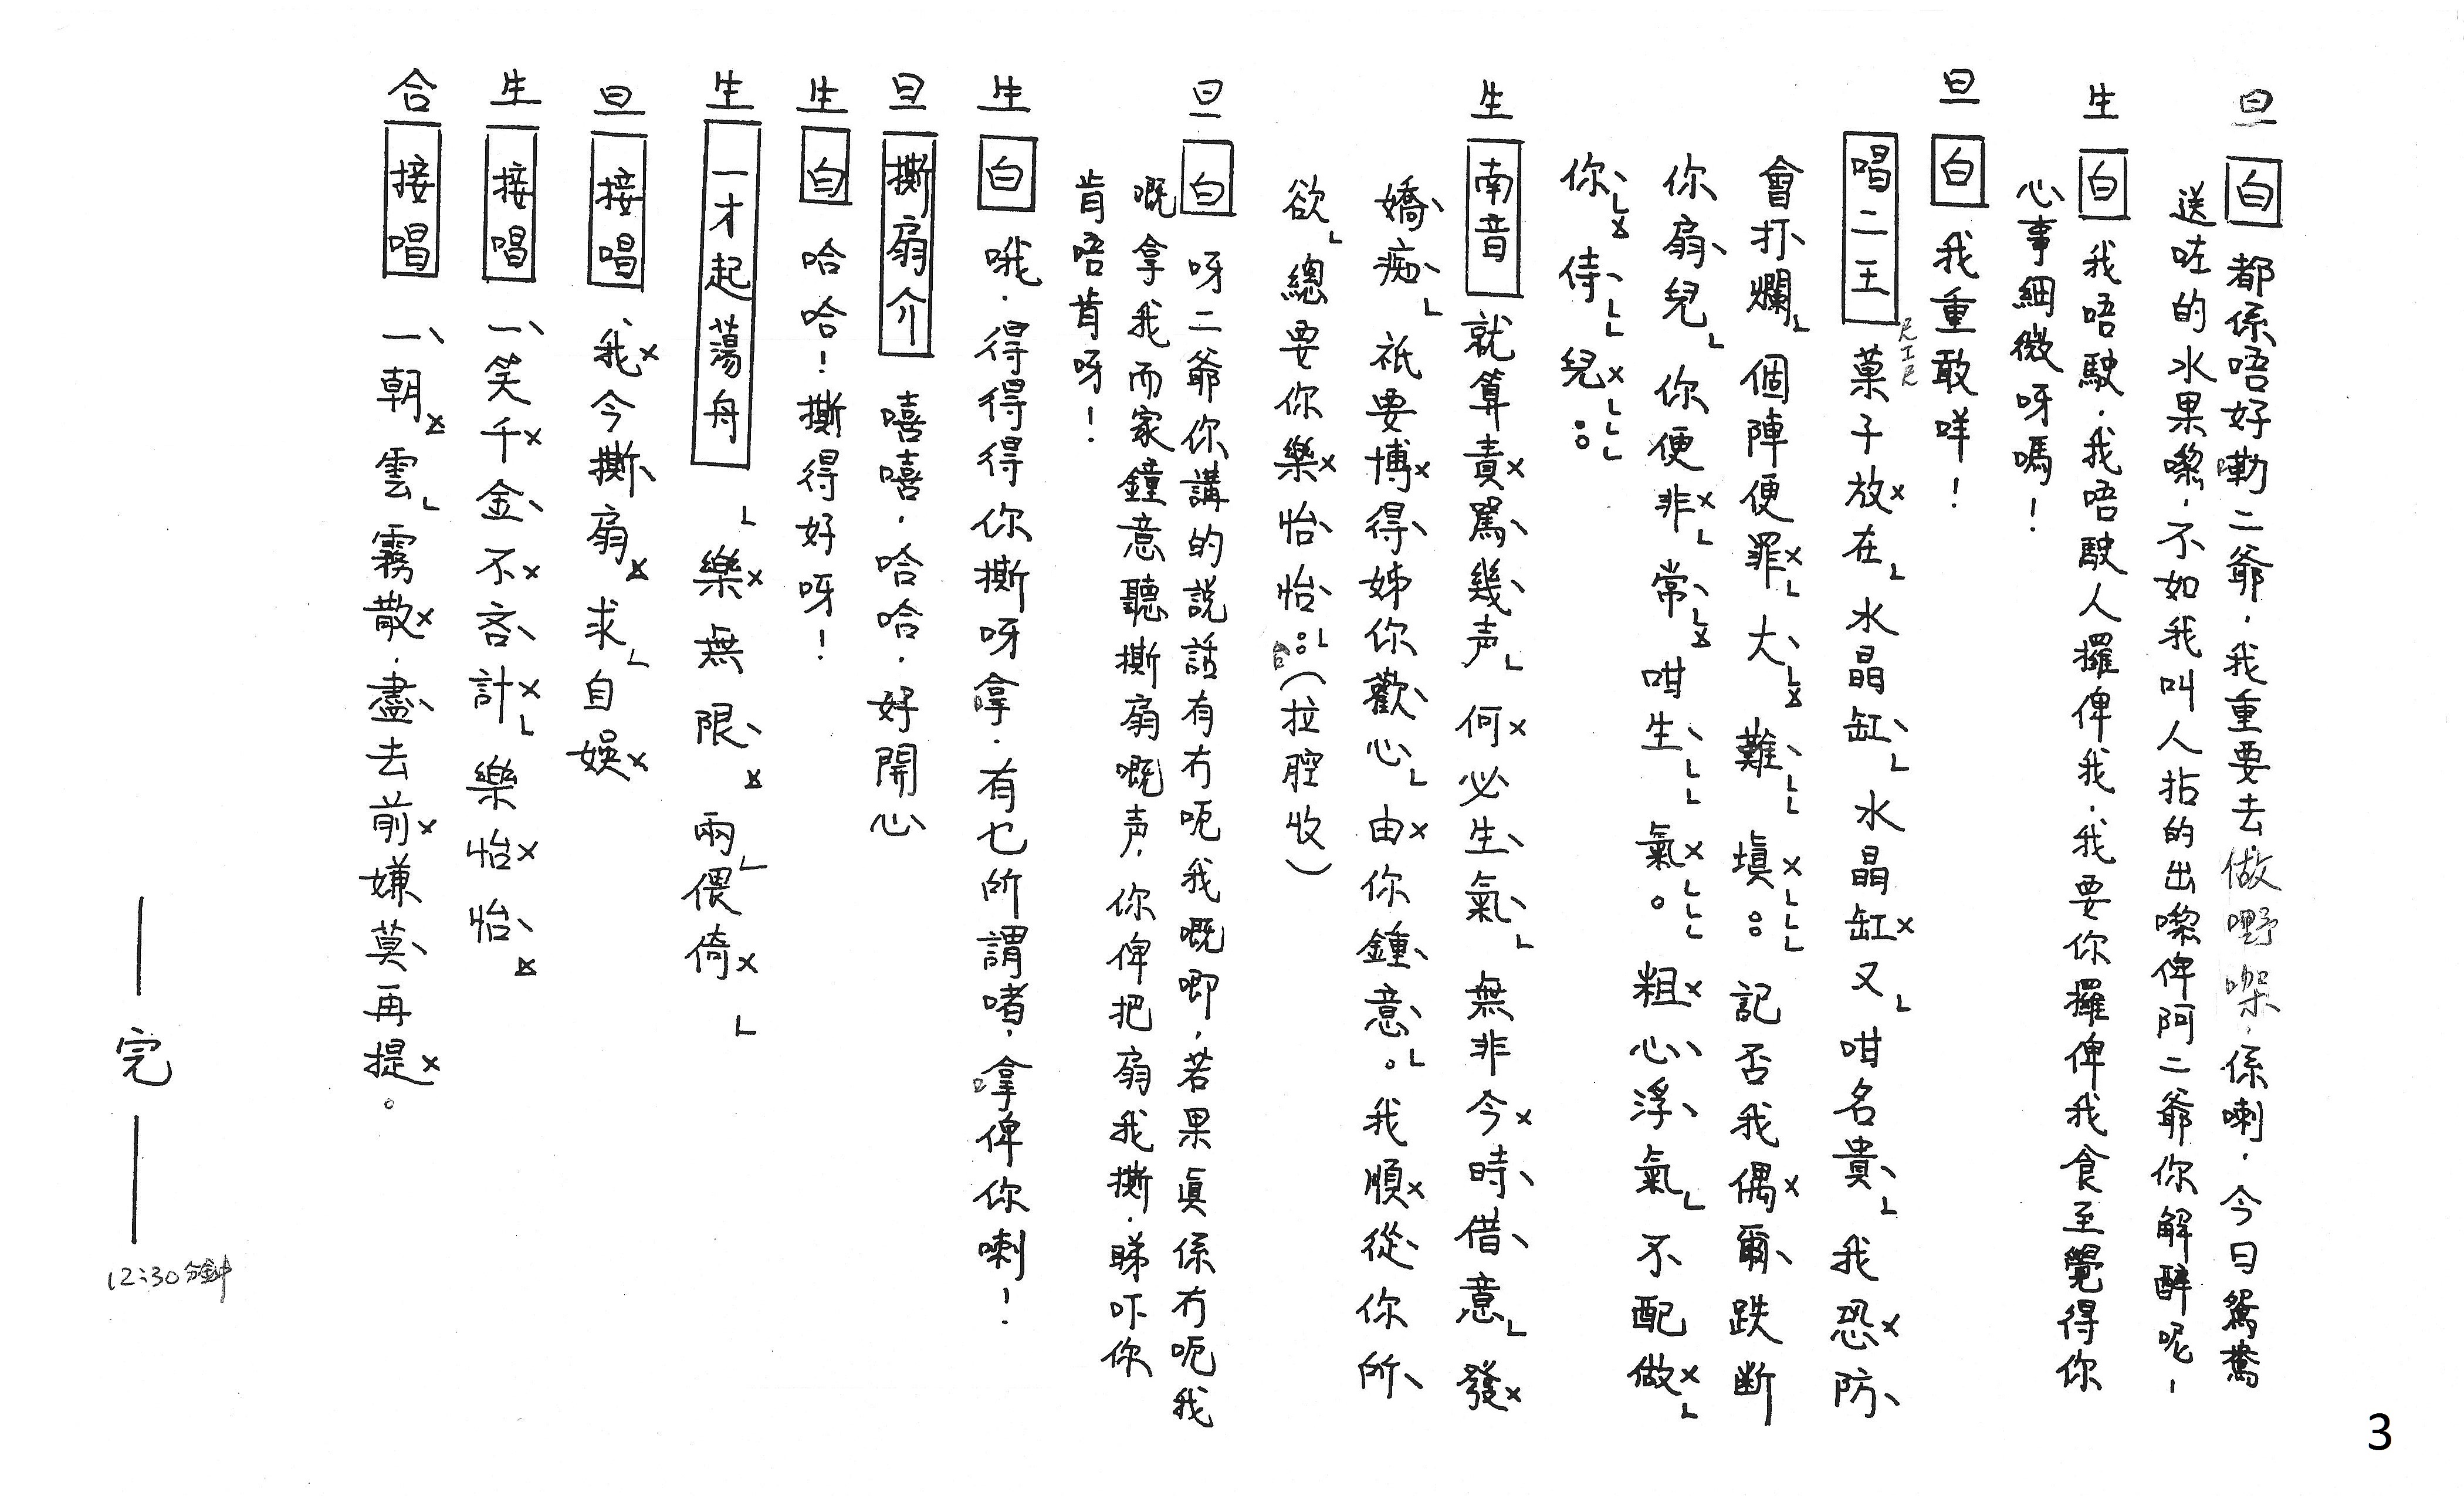 旦 白 都係唔好嘞二爺．我重要去做嘢㗎．係喇．今日鴛鴦
送咗的水果嚟．不如我叫人拈的出嚟俾阿二爺你解醉呢！
生 白 我唔駛．我唔駛人攞俾我．我要你攞俾我食至覺得你
心事細微呀嗎！
旦 白 我重敢咩！
唱二王 尺工尺 菓子放在 水晶缸 水晶缸又 咁名貴 我恐防
會打爛 個陣便罪大 難填。。記否我偶爾跌断
你扇兒 你便非常 咁生氣。粗心浮氣 不配做
你 侍兒。。
生 南音 就算責罵幾声 何必生氣 無非今時借意 發
嬌痴 祇要博得姊你歡心 由你鍾意。我順從你所
欲 總要你樂怡怡。。合（拉腔收）
旦 白 呀二爺你講的說話有冇呃我嘅唧．若果眞係冇呃我
嘅拿我而家鐘意聽撕扇嘅声．你俾把扇我撕．睇吓你
肯唔肯呀！
生 白 哦．得得得你撕呀嗱．有乜所謂啫．嗱俾你喇！
旦 撕扇介 嘻嘻．哈哈．好開心
生 白 哈哈！撕得好呀！
生 一才起蕩舟 樂無限 兩偎倚
旦 接唱 我今撕扇求自娛
生 接唱 一笑千金不吝計 樂怡怡
合 接唱 一朝雲霧散．盡去前嫌莫再提。
— 完 —
12:30分鐘
3